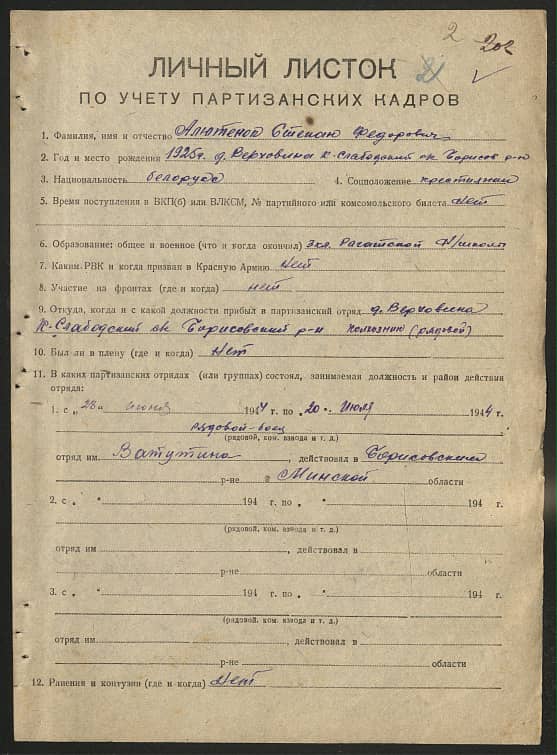 2
202
21
ЛИЧНЫЙ ЛИСТОК
ПО УЧЕТУ ПАРТИЗАНСКИХ КАДРОВ
1. Фамилия, имя и отчество Степан Федорович
2. Год и место рождения 1925г. д. Верховина К-Слабодский с/с Борисов р-н
3. Национальность белорус 4. Соцположение крестьянин
5. Время поступления в ВКП(б) или ВЛКСМ, № партийного или комсомольского билета Нет
6. Образование: общее и военное (что и когда окончил) 3кл. Н/школы
7. Каким РВК и когда призван в Красную Армию Нет
8. Участие на фронтах (где и когда) нет
9. Откуда, когда и с какой должности прибыл в партизанский отряд д. Верховина
К-Слабодский с/с Борисовский р-н (рядовой)
10. Был ли в плену (где и когда) Нет
11. В каких партизанских отрядах (или группах) состоял, занимаемая должность и район действия
отряда:
1. с „ 28 “ 1944 г. по „ 20 “ Июля 1944 г.
рядовой-боец
(рядовой, ком. взвода и т. д.)
отряд им. Ватутина, действовал в Борисовский
р-не Минской области
2. с „ “ 194 г. по „ “ 194 г.
(рядовой, ком. взвода и т. д.)
отряд им. , действовал в
р-не области
3. с „ “ 194 г. по „ “ 194 г.
(рядовой, ком. взвода и т. д.)
отряд им. , действовал в
р-не области
12. Ранения и контузии (где и когда) Нет